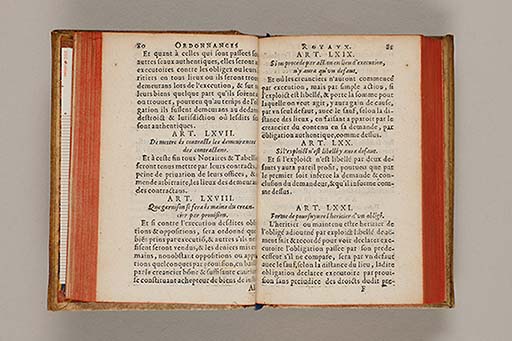 80 ORDONNANCES
Et quant à celles qui sont passees so
autres seaux authentiques, elles seront
executoires contre les obligez ou leurs
ritiers en tous lieux où ils seront tro
demeurans lors de l'execution, & sur
leurs biens quelque part qu'ils soient
ou trouuez, pourueu qu'au temps de l'ob
gation ils fussent demeurans au dedans
destroit & Iurisdiction où lesdits
sont authentiques.
ART. LXVII.
De mettre és contracts les demeurances
des contractans.
Et à ceste fin tous Notaires & Tabelli
seront tenus mettre par leurs contracts
peine de priuation de leurs offices, &
mende arbitraire, les lieux des demeura
des contractans.
ART. LXVIII.
Que garnison se fera és mains du crean-
cier par prouision.
Et si contre l'execution desdites obli
tions y opposition, sera ordonné que
biens prins par execution, & autres s'ils ne
fisent seront vendus, & les deniers mis és
mains, nonobstant oppositions ou appella
tions quelconques par prouision, en baillant
par le creancier bonne & suffisante caution
se constituant achepteur de biens de iustice
ROYAVX. 81
ART. LXIX.
Si on procede par action au lieu d'execution,
n'y aura qu'vn defaut.
Et où les creanciers n'auront commencé
par execution, mais par simple action, si
l'exploict est libellé, & porte la somme pour
laquelle on veut agir, y aura gain de cause,
par vn seul defaut, auec le sauf, selon la di-
stance des lieux, en faisant apparoir par le
creancier du contenu en sa demande, par
obligation authentique, comme dessus.
ART. LXX.
Si l'exploict n'est libellé y aura defaut.
Et si l'exploict n'est libellé par deux de-
fauts y aura pareil profit, pourueu que par
le premier soit inserée la demande & con-
clusion du demandeur, & qu'il informe com-
me dessus.
ART. LXXI.
Forme de poursuyure l'heritier d'vn obligé.
L'heritier ou maintenu estre heritier de
l'obligé adiourné par exploict libellé deuë-
ment fait & recordé pour voir declarer exe-
cutoire l'obligation passee par son prede-
cesseur s'il ne compare, sera par vn defaut
auec le sauf, selon la distance du lieu, ladite
obligation declaree executoire par proui-
sion sans preiudice des droicts dudit pre-
F